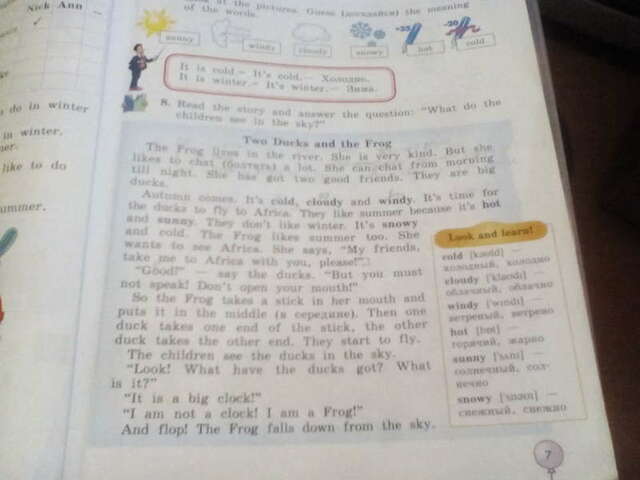 Nick Ann
do in winter
in winter,
like to do
ummer.
at the pictures. Guess (догадайся) the meaning
of the words.
sunny
windy
cloudy
snowy
hot
cold
It is cold – It's cold. – Холодно.
It is winter. – It's winter. – Зима.
8. Read the story and answer the question: "What do the
children see in the sky?"
Two Ducks and the Frog
The Frog lives in the river. She is very kind. But she
likes to chat (болтать) a lot. She can chat from morning
till night. She has got two good friends. They are big
ducks.
Autumn comes. It's cold, cloudy and windy. It's time for
the ducks to fly to Africa. They like summer because it's hot
and sunny. They don't like winter. It's snowy
and cold. The Frog likes summer too. She
wants to see Africa. She says, "My friends,
take me to Africa with you, please!"
"Good!" — say the ducks. "But you must
not speak! Don't open your mouth!"
So the Frog takes a stick in her mouth and
puts it in the middle (в середине). Then one
duck takes one end of the stick, the other
duck takes the other end. They start to fly.
The children see the ducks in the sky.
"Look! What have the ducks got? What
is it?"
"It is a big clock!"
"I am not a clock! I am a Frog!"
And flop! The Frog falls down from the sky.
Look and learn!
cold [kəʊld] —
холодный, холодно
cloudy ['klaʊdɪ] —
облачный, облачно
windy ['wɪndɪ] —
ветреный, ветрено
hot [hɒt] —
горячий, жарко
sunny ['sʌnɪ] —
солнечный, сол-
нечно
snowy ['snəʊɪ] —
снежный, снежно
7